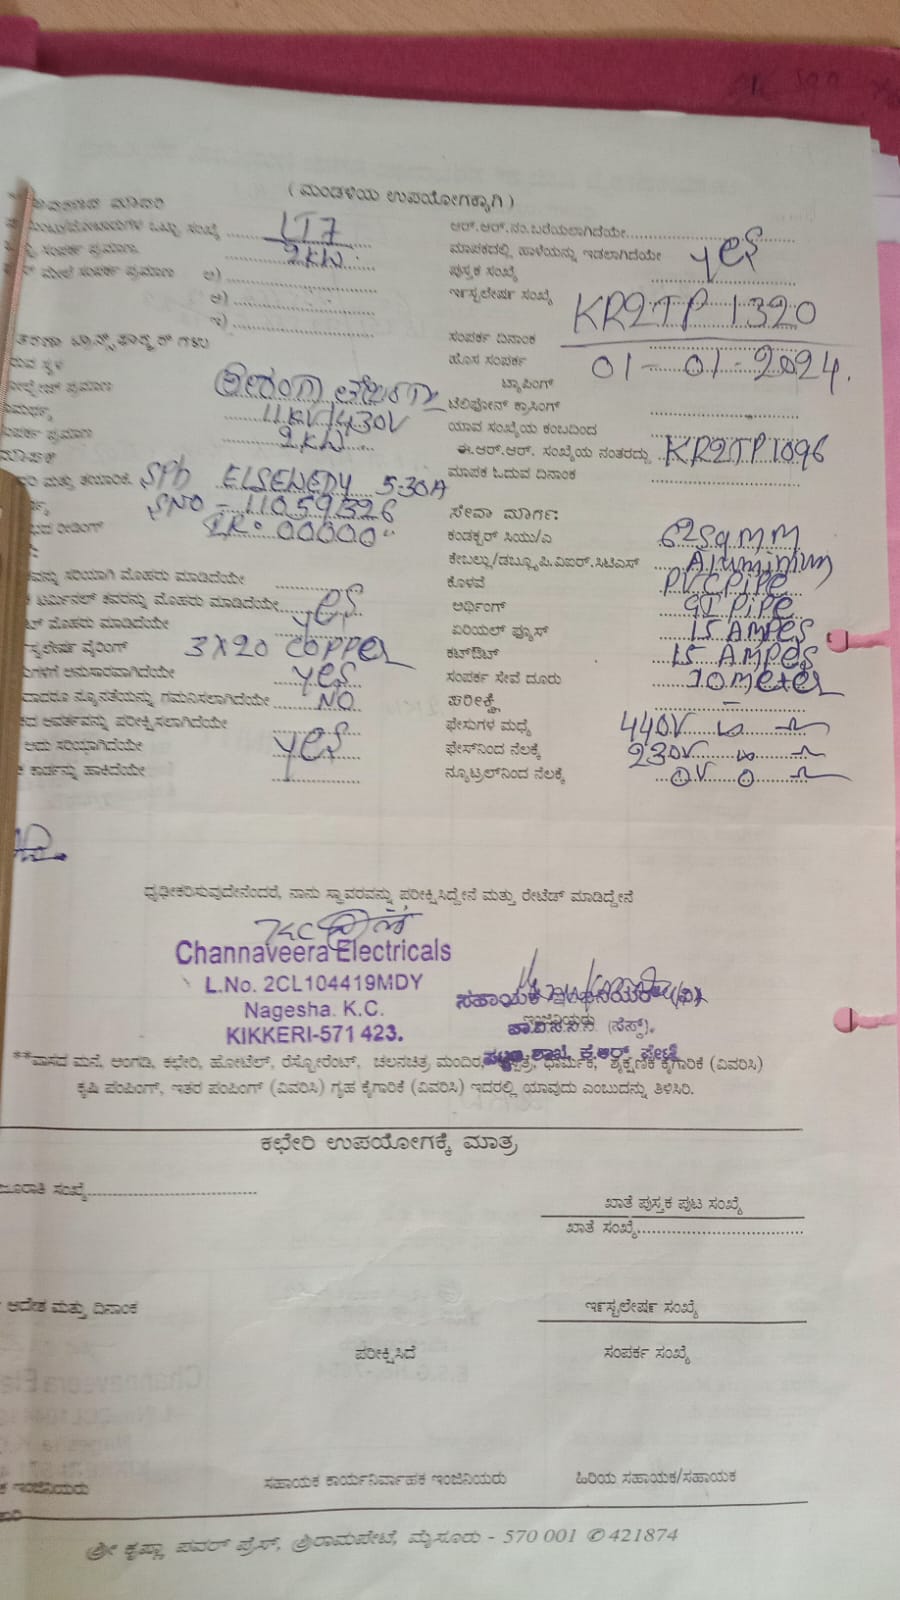 ( ಮಂಡಳಿಯ ಉಪಯೋಗಕ್ಕಾಗಿ )
ಒಟ್ಟು ಸಂಖ್ಯೆ LT7
ಸಂಪರ್ಕ ಪ್ರಮಾಣ 2KW
ಮೇಲೆ ಸಂಪರ್ಕ ಪ್ರಮಾಣ ಅ)
ಆ)
ಇ)
ಸ್ಥಳ
ಪ್ರಮಾಣ
11KV/430V
ಪ್ರಮಾಣ 2KW
ಮತ್ತು ತಯಾರಿಕೆ. SPD 5-30A
SNO - 11059326
ರೀಡಿಂಗ್ IR: 00000"
ಸರಿಯಾಗಿ ಮೊಹರು ಮಾಡಿದೆಯೇ
ಟರ್ಮಿನಲ್ ಕವರನ್ನು ಮೊಹರು ಮಾಡಿದೆಯೇ yes
ಮೊಹರು ಮಾಡಿದೆಯೇ
ವೈರಿಂಗ್ 3X20 COPPER
ಅನುಸಾರವಾಗಿದೆಯೇ yes
ನ್ಯೂನತೆಯನ್ನು ಗಮನಿಸಲಾಗಿದೆಯೇ NO
ಆವರ್ತವನ್ನು ಪರೀಕ್ಷಿಸಲಾಗಿದೆಯೇ
ಅದು ಸರಿಯಾಗಿದೆಯೇ yes
ಕಾರ್ಡನ್ನು ಹಾಕಿದೆಯೇ
ಆರ್.ಆರ್.ನಂ.ಬರೆಯಲಾಗಿದೆಯೇ
ಮಾಪಕದಲ್ಲಿ ಹಾಳೆಯನ್ನು ಇಡಲಾಗಿದೆಯೇ yes
ಪುಸ್ತಕ ಸಂಖ್ಯೆ
ಇನ್‌ಸ್ಟಲೇಷನ್ ಸಂಖ್ಯೆ KR2TP 1320
ಸಂಪರ್ಕ ದಿನಾಂಕ
ಹೊಸ ಸಂಪರ್ಕ 01-01-2024.
ಟ್ಯಾಪಿಂಗ್
ಟೆಲಿಫೋನ್ ಕ್ರಾಸಿಂಗ್
ಯಾವ ಸಂಖ್ಯೆಯ ಕಂಬದಿಂದ
ಈ.ಆರ್.ಆರ್. ಸಂಖ್ಯೆಯ ನಂತರದ್ದು KR2TP1096
ಮಾಪಕ ಓದುವ ದಿನಾಂಕ
ಸೇವಾ ಮಾರ್ಗ:
ಕಂಡಕ್ಟರ್ ಸಿಯು/ಎ 62Sqmm
ಕೇಬಲ್ಲು/ಡಬ್ಲ್ಯೂ.ಪಿ.ವಿಐಆರ್.ಸಿಟಿಎಸ್ Aluminium
ಕೊಳವೆ PVC Pipe
ಅರ್ಥಿಂಗ್ GI Pipe
ಏರಿಯಲ್ ಫ್ಯೂಸ್ 15 AMPES
ಕಟ್‌ಔಟ್ 15 AMPES
ಸಂಪರ್ಕ ಸೇವೆ ದೂರು 10meter
ಪರೀಕ್ಷೆ -
ಫೇಸುಗಳ ಮಧ್ಯೆ 440V
ಫೇಸ್‌ನಿಂದ ನೆಲಕ್ಕೆ 230V
ನ್ಯೂಟ್ರಲ್‌ನಿಂದ ನೆಲಕ್ಕೆ 0V
ಧೃಢೀಕರಿಸುವುದೇನೆಂದರೆ, ನಾನು ಸ್ಥಾವರವನ್ನು ಪರೀಕ್ಷಿಸಿದ್ದೇನೆ ಮತ್ತು ರೇಟೆಡ್ ಮಾಡಿದ್ದೇನೆ
Channaveera Electricals
L.No. 2CL104419MDY
Nagesha. K.C.
KIKKERI-571 423.
ಸಹಾಯಕ
ಶಾಖೆ, ಕೆ.ಆರ್. ಪೇಟೆ
**ವಾಸದ ಮನೆ, ಅಂಗಡಿ, ಕಛೇರಿ, ಹೋಟೆಲ್, ರೆಸ್ಟೋರೆಂಟ್, ಚಲನಚಿತ್ರ ಮಂದಿರ, ಧಾರ್ಮಿಕ, ಶೈಕ್ಷಣಿಕ ಕೈಗಾರಿಕೆ (ವಿವರಿಸಿ)
ಕೃಷಿ ಪಂಪಿಂಗ್, ಇತರ ಪಂಪಿಂಗ್ (ವಿವರಿಸಿ) ಗೃಹ ಕೈಗಾರಿಕೆ (ವಿವರಿಸಿ) ಇದರಲ್ಲಿ ಯಾವುದು ಎಂಬುದನ್ನು ತಿಳಿಸಿರಿ.
ಕಛೇರಿ ಉಪಯೋಗಕ್ಕೆ ಮಾತ್ರ
ಸಂಖ್ಯೆ
ಖಾತೆ ಪುಸ್ತಕ ಪುಟ ಸಂಖ್ಯೆ
ಖಾತೆ ಸಂಖ್ಯೆ
ಆದೇಶ ಮತ್ತು ದಿನಾಂಕ
ಇನ್‌ಸ್ಟಲೇಷನ್ ಸಂಖ್ಯೆ
ಪರೀಕ್ಷಿಸಿದೆ
ಸಂಪರ್ಕ ಸಂಖ್ಯೆ
ಇಂಜಿನಿಯರು
ಸಹಾಯಕ ಕಾರ್ಯನಿರ್ವಾಹಕ ಇಂಜಿನಿಯರು
ಹಿರಿಯ ಸಹಾಯಕ/ಸಹಾಯಕ
ಶ್ರೀ ಕೃಷ್ಣಾ ಪವರ್ ಪ್ರೆಸ್, ಶ್ರೀರಾಮಪೇಟೆ, ಮೈಸೂರು - 570 001 ✆ 421874